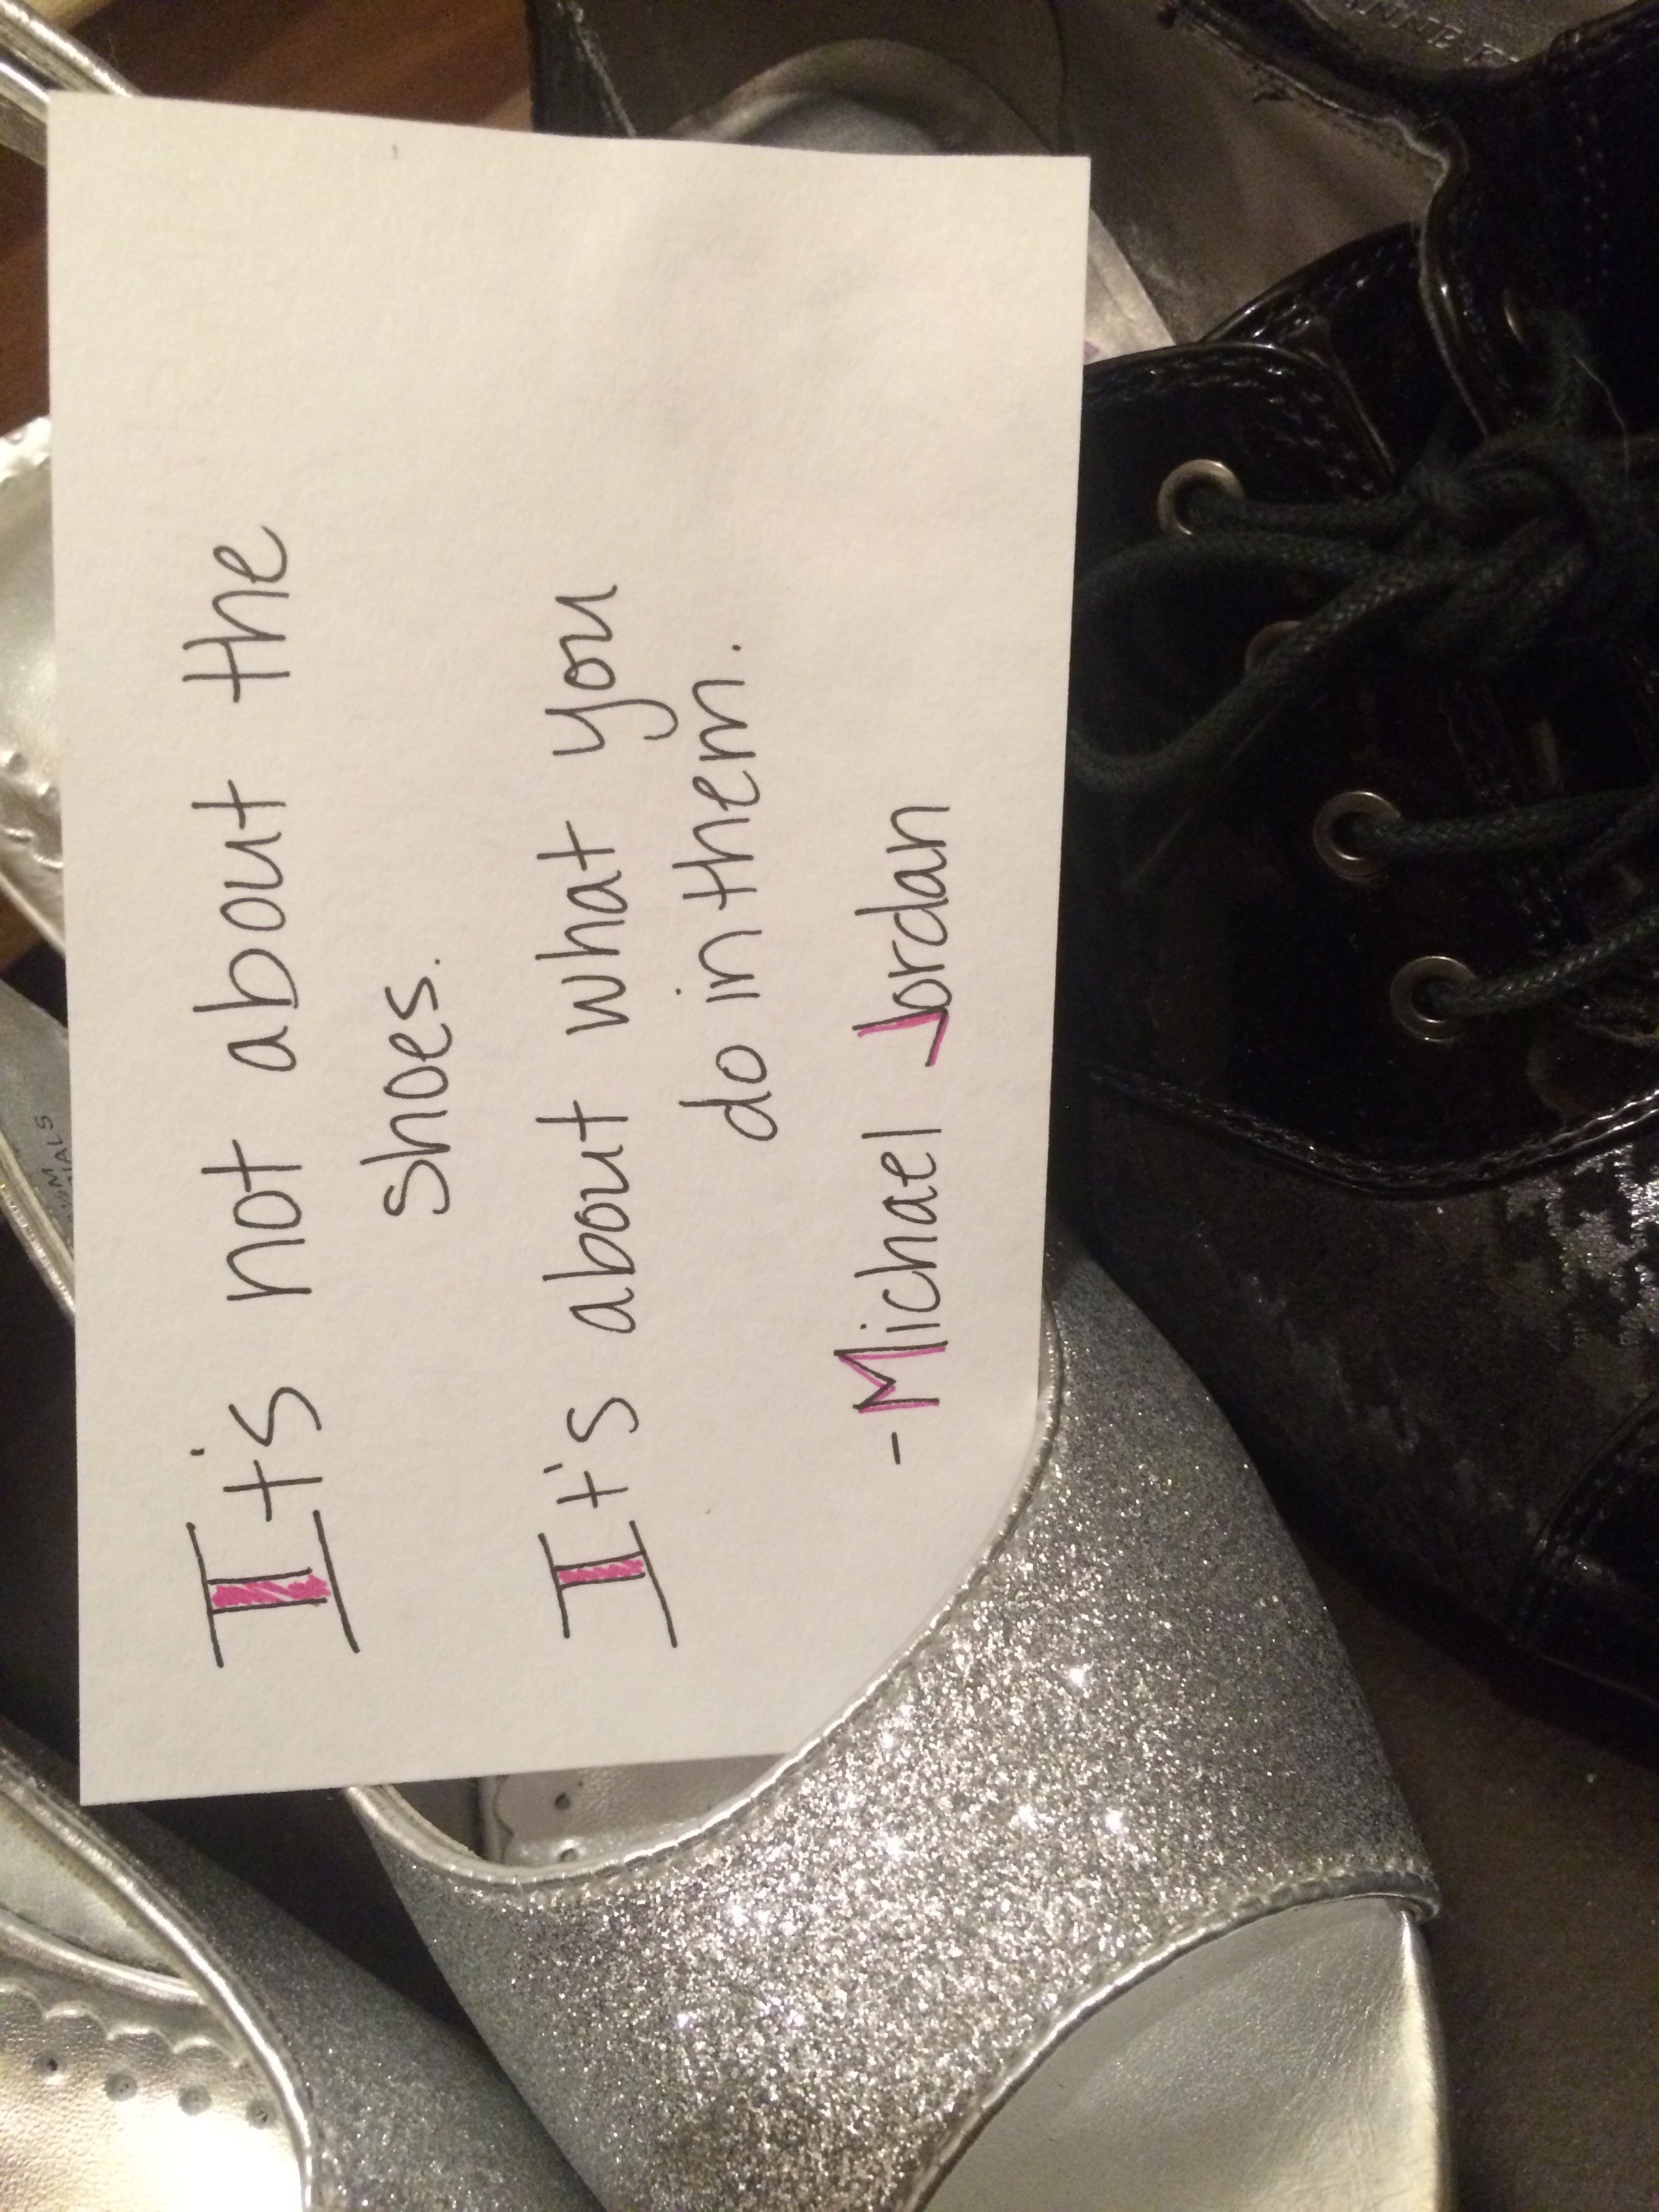 It's not about the
shoes.
It's about what you
do in them.
-Michael Jordan